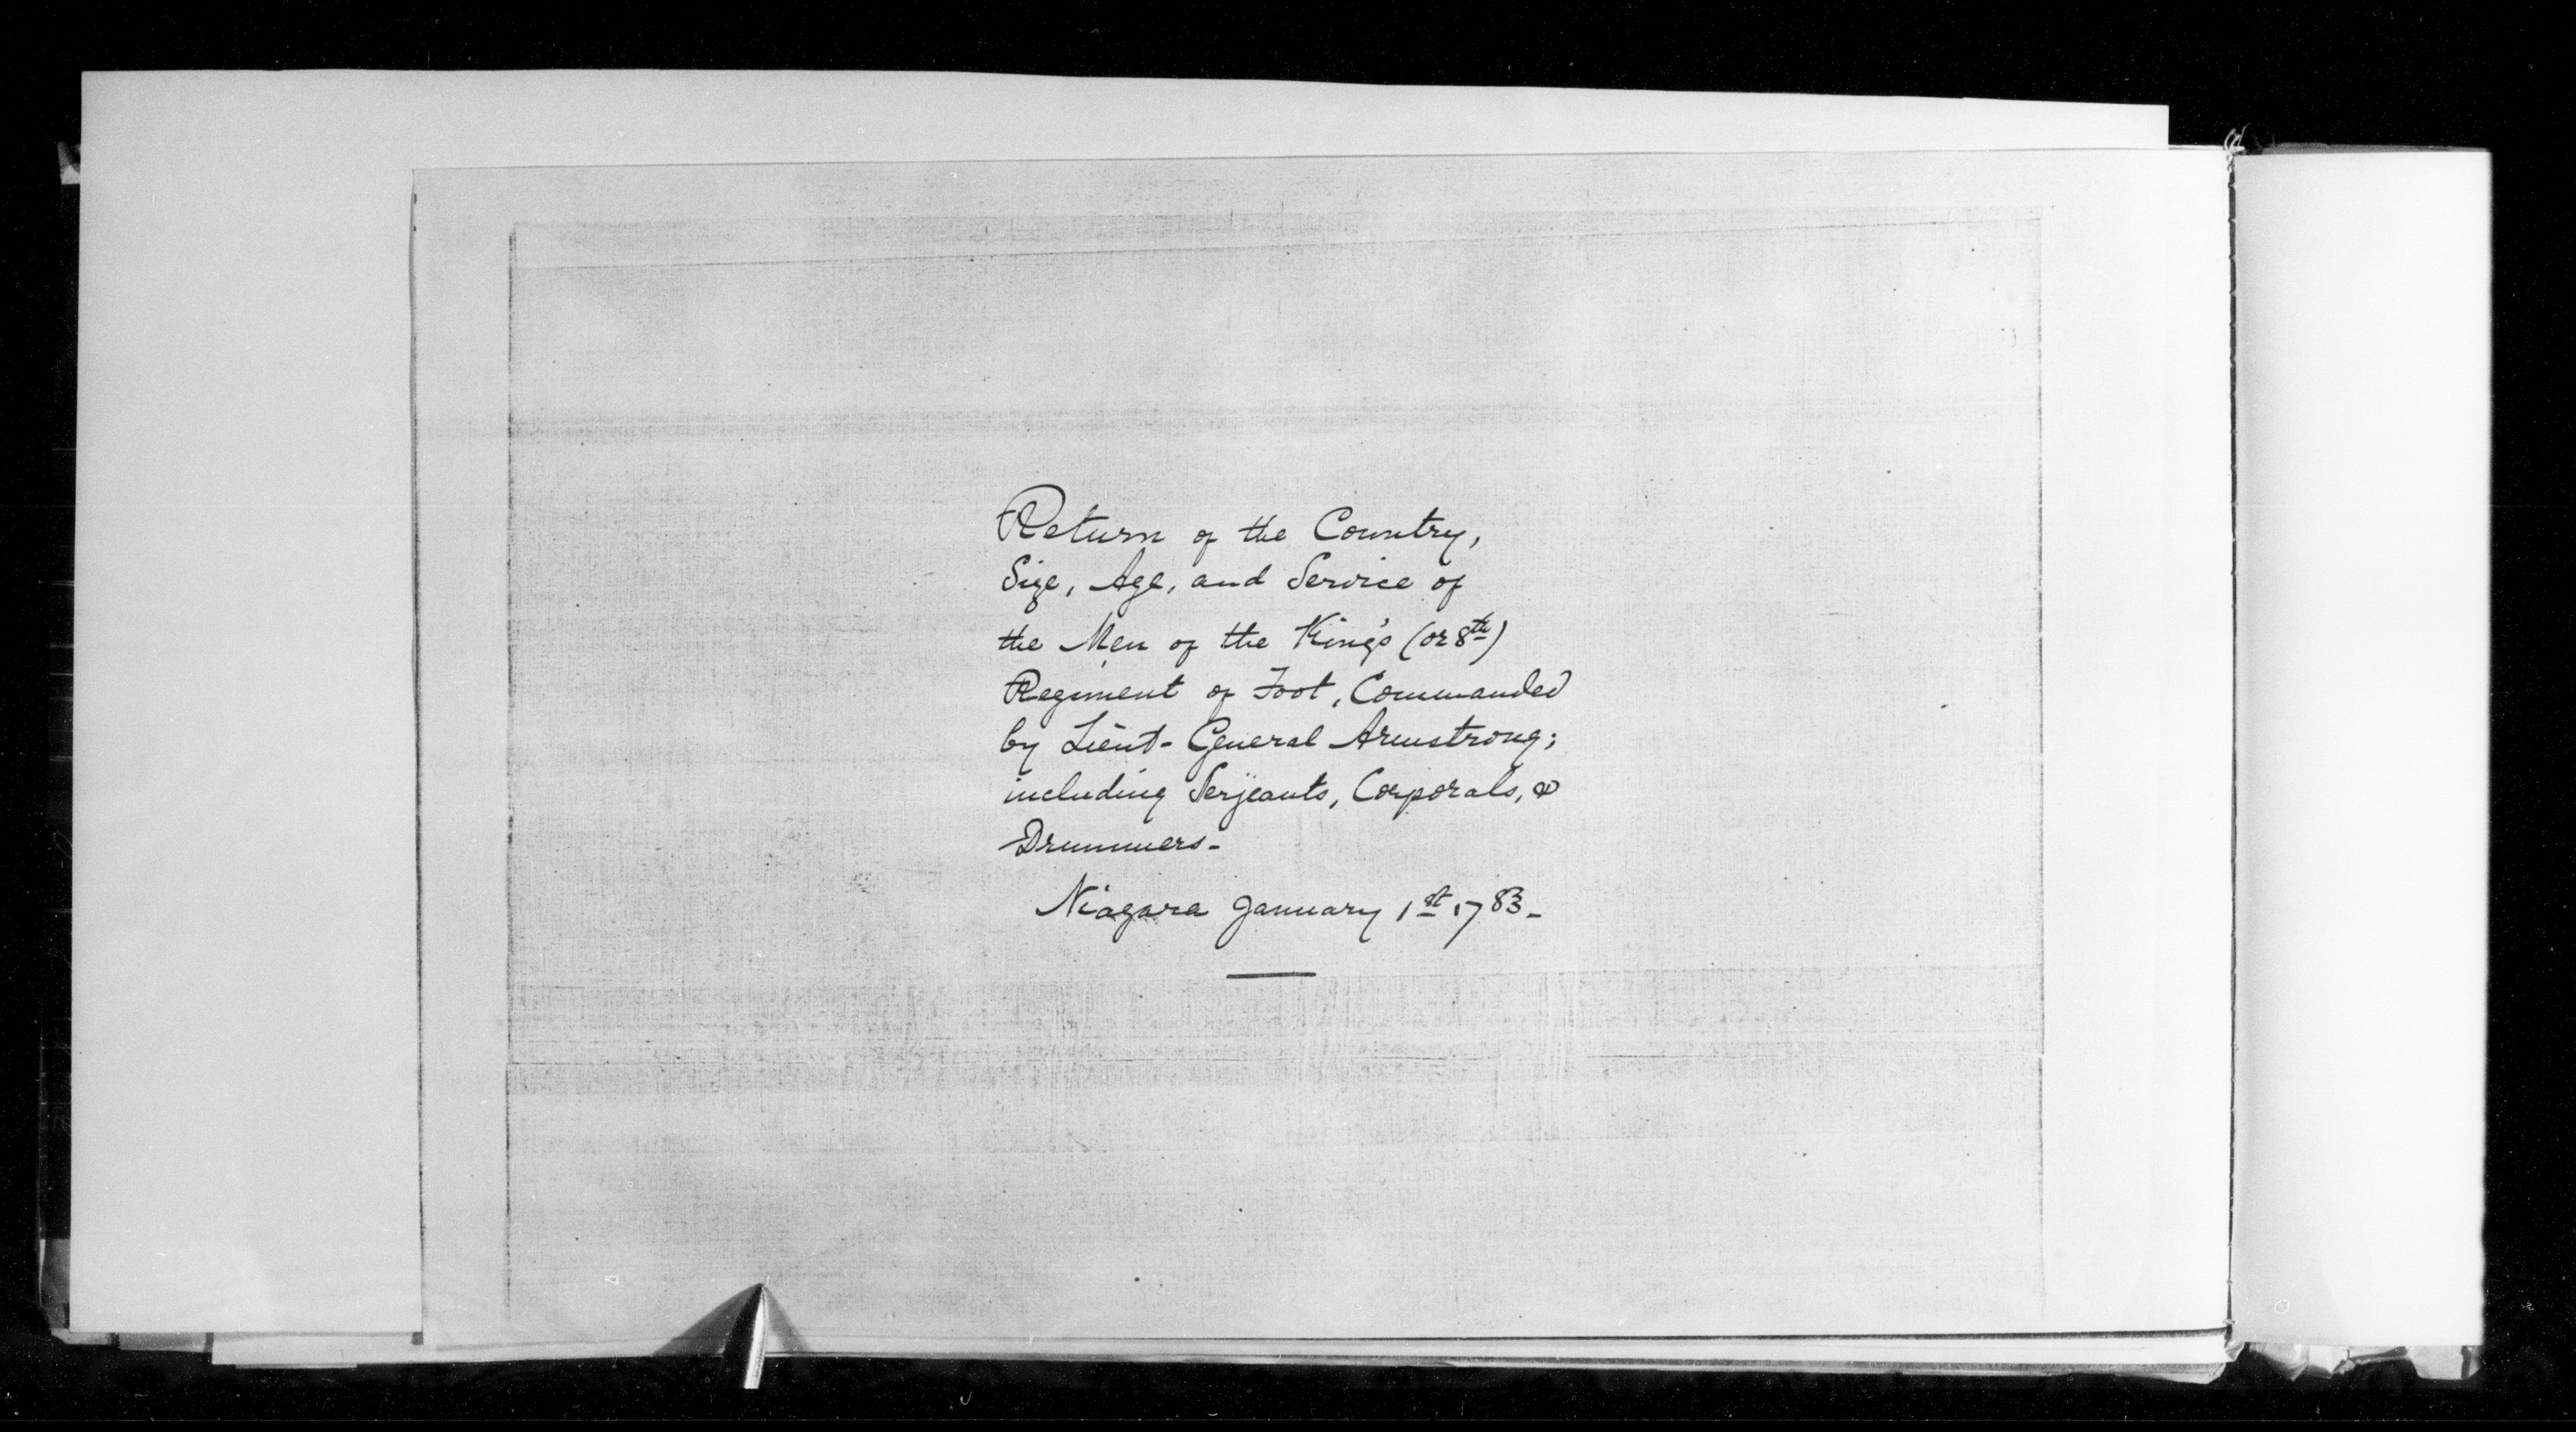 Return of the Country,
Size, Age, and Service of
the Men of the King's (or 8th)
Regiment of Foot, Commanded
by Lieut- General Armstrong;
including Serjeants, Corporals, &
Drummers-
Niagara January 1st 1783-